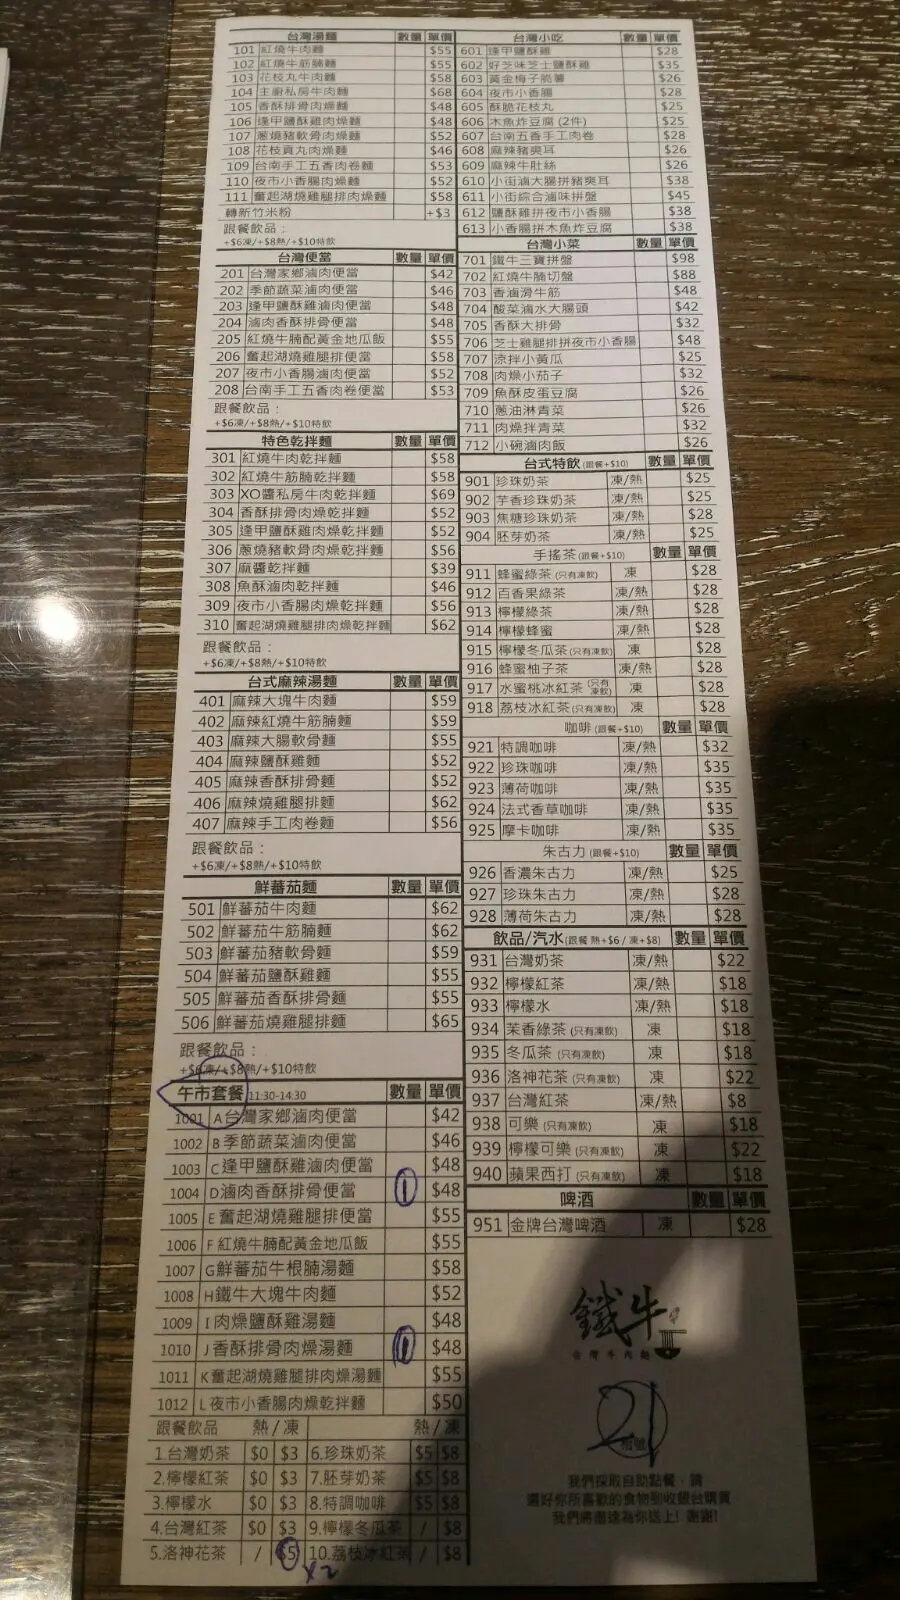 台灣湯麵 數量 單價
101 紅燒牛肉麵 $55
102 紅燒牛筋腩麵 $55
103 花枝丸牛肉麵 $58
104 主廚私房牛肉麵 $68
105 香酥排骨肉燥麵 $48
106 逢甲鹽酥雞肉燥麵 $48
107 蔥燒豬軟骨肉燥麵 $52
108 花枝貢丸肉燥麵 $46
109 台南手工五香肉卷麵 $53
110 夜市小香腸肉燥麵 $52
111 奮起湖燒雞腿排肉燥麵 $58
轉新竹米粉 +$3
跟餐飲品：
+$6凍/+$8熱/+$10特飲
台灣便當 數量 單價
201 台灣家鄉滷肉便當 $42
202 季節蔬菜滷肉便當 $46
203 逢甲鹽酥雞滷肉便當 $48
204 滷肉香酥排骨便當 $48
205 紅燒牛腩配黃金地瓜飯 $55
206 奮起湖燒雞腿排便當 $58
207 夜市小香腸滷肉便當 $52
208 台南手工五香肉卷便當 $53
跟餐飲品：
+$6凍/+$8熱/+$10特飲
特色乾拌麵 數量 單價
301 紅燒牛肉乾拌麵 $58
302 紅燒牛筋腩乾拌麵 $58
303 XO醬私房牛肉乾拌麵 $69
304 香酥排骨肉燥乾拌麵 $52
305 逢甲鹽酥雞肉燥乾拌麵 $52
306 蔥燒豬軟骨肉燥乾拌麵 $56
307 麻醬乾拌麵 $39
308 魚酥滷肉乾拌麵 $46
309 夜市小香腸肉燥乾拌麵 $56
310 奮起湖燒雞腿排肉燥乾拌麵 $62
跟餐飲品：
+$6凍/+$8熱/+$10特飲
台式麻辣湯麵 數量 單價
401 麻辣大塊牛肉麵 $59
402 麻辣紅燒牛筋腩麵 $59
403 麻辣大腸軟骨麵 $55
404 麻辣鹽酥雞麵 $52
405 麻辣香酥排骨麵 $52
406 麻辣燒雞腿排麵 $62
407 麻辣手工肉卷麵 $56
跟餐飲品：
+$6凍/+$8熱/+$10特飲
鮮蕃茄麵 數量 單價
501 鮮蕃茄牛肉麵 $62
502 鮮蕃茄牛筋腩麵 $62
503 鮮蕃茄豬軟骨麵 $59
504 鮮蕃茄鹽酥雞麵 $55
505 鮮蕃茄香酥排骨麵 $55
506 鮮蕃茄燒雞腿排麵 $65
跟餐飲品：
+$6凍/+$8熱/+$10特飲
午市套餐 11:30-14:30 數量 單價
1001 A 台灣家鄉滷肉便當 $42
1002 B 季節蔬菜滷肉便當 $46
1003 C 逢甲鹽酥雞滷肉便當 $48
1004 D 滷肉香酥排骨便當 1 $48
1005 E 奮起湖燒雞腿排便當 $55
1006 F 紅燒牛腩配黃金地瓜飯 $55
1007 G 鮮蕃茄牛根腩湯麵 $58
1008 H 鐵牛大塊牛肉麵 $52
1009 I 肉燥鹽酥雞湯麵 $48
1010 J 香酥排骨肉燥湯麵 1 $48
1011 K 奮起湖燒雞腿排肉燥湯麵 $55
1012 L 夜市小香腸肉燥乾拌麵 $50
跟餐飲品 熱 / 凍 熱 / 凍
1.台灣奶茶 $0 $3 6.珍珠奶茶 $5 $8
2.檸檬紅茶 $0 $3 7.胚芽奶茶 $5 $8
3.檸檬水 $0 $3 8.特調咖啡 $5 $8
4.台灣紅茶 $0 $3 9.檸檬冬瓜茶 / $8
5.洛神花茶 / $5 10.荔枝冰紅茶 / $8
x2
台灣小吃 數量 單價
601 逢甲鹽酥雞 $28
602 好芝味芝士鹽酥雞 $35
603 黃金梅子脆薯 $26
604 夜市小香腸 $28
605 酥脆花枝丸 $25
606 木魚炸豆腐 (2件) $25
607 台南五香手工肉卷 $28
608 麻辣豬爽耳 $26
609 麻辣牛肚絲 $26
610 小街滷大腸拼豬爽耳 $38
611 小街綜合滷味拼盤 $45
612 鹽酥雞拼夜市小香腸 $38
613 小香腸拼木魚炸豆腐 $38
台灣小菜 數量 單價
701 鐵牛三寶拼盤 $98
702 紅燒牛腩切盤 $88
703 香滷滑牛筋 $48
704 酸菜滷水大腸頭 $42
705 香酥大排骨 $32
706 芝士雞腿排拼夜市小香腸 $48
707 涼拌小黃瓜 $25
708 肉燥小茄子 $32
709 魚酥皮蛋豆腐 $26
710 蔥油淋青菜 $26
711 肉燥拌青菜 $32
712 小碗滷肉飯 $26
台式特飲 (跟餐+$10) 數量 單價
901 珍珠奶茶 凍/熱 $25
902 芋香珍珠奶茶 凍/熱 $25
903 焦糖珍珠奶茶 凍/熱 $28
904 胚芽奶茶 凍/熱 $25
手搖茶 (跟餐+$10) 數量 單價
911 蜂蜜綠茶 (只有凍飲) 凍 $28
912 百香果綠茶 凍/熱 $28
913 檸檬綠茶 凍/熱 $28
914 檸檬蜂蜜 凍/熱 $28
915 檸檬冬瓜茶 (只有凍飲) 凍 $28
916 蜂蜜柚子茶 凍/熱 $28
917 水蜜桃冰紅茶 (只有凍飲) 凍 $28
918 荔枝冰紅茶 (只有凍飲) 凍 $28
咖啡 (跟餐+$10) 數量 單價
921 特調咖啡 凍/熱 $32
922 珍珠咖啡 凍/熱 $35
923 薄荷咖啡 凍/熱 $35
924 法式香草咖啡 凍/熱 $35
925 摩卡咖啡 凍/熱 $35
朱古力 (跟餐+$10) 數量 單價
926 香濃朱古力 凍/熱 $25
927 珍珠朱古力 凍/熱 $28
928 薄荷朱古力 凍/熱 $28
飲品/汽水 (跟餐 熱+$6 / 凍+$8) 數量 單價
931 台灣奶茶 凍/熱 $22
932 檸檬紅茶 凍/熱 $18
933 檸檬水 凍/熱 $18
934 茉香綠茶 (只有凍飲) 凍 $18
935 冬瓜茶 (只有凍飲) 凍 $18
936 洛神花茶 (只有凍飲) 凍 $22
937 台灣紅茶 凍/熱 $8
938 可樂 (只有凍飲) 凍 $18
939 檸檬可樂 (只有凍飲) 凍 $22
940 蘋果西打 (只有凍飲) 凍 $18
啤酒 數量 單價
951 金牌台灣啤酒 凍 $28
鐵牛
台灣牛肉麵
21
我們採取自助點餐，請
選好你所喜歡的食物到收銀台購買
我們將盡速為你送上! 謝謝!